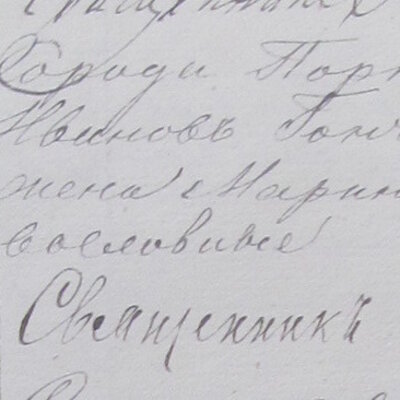 Города Пор
Ивановъ Гон
жена Марин
вославные
Священникъ